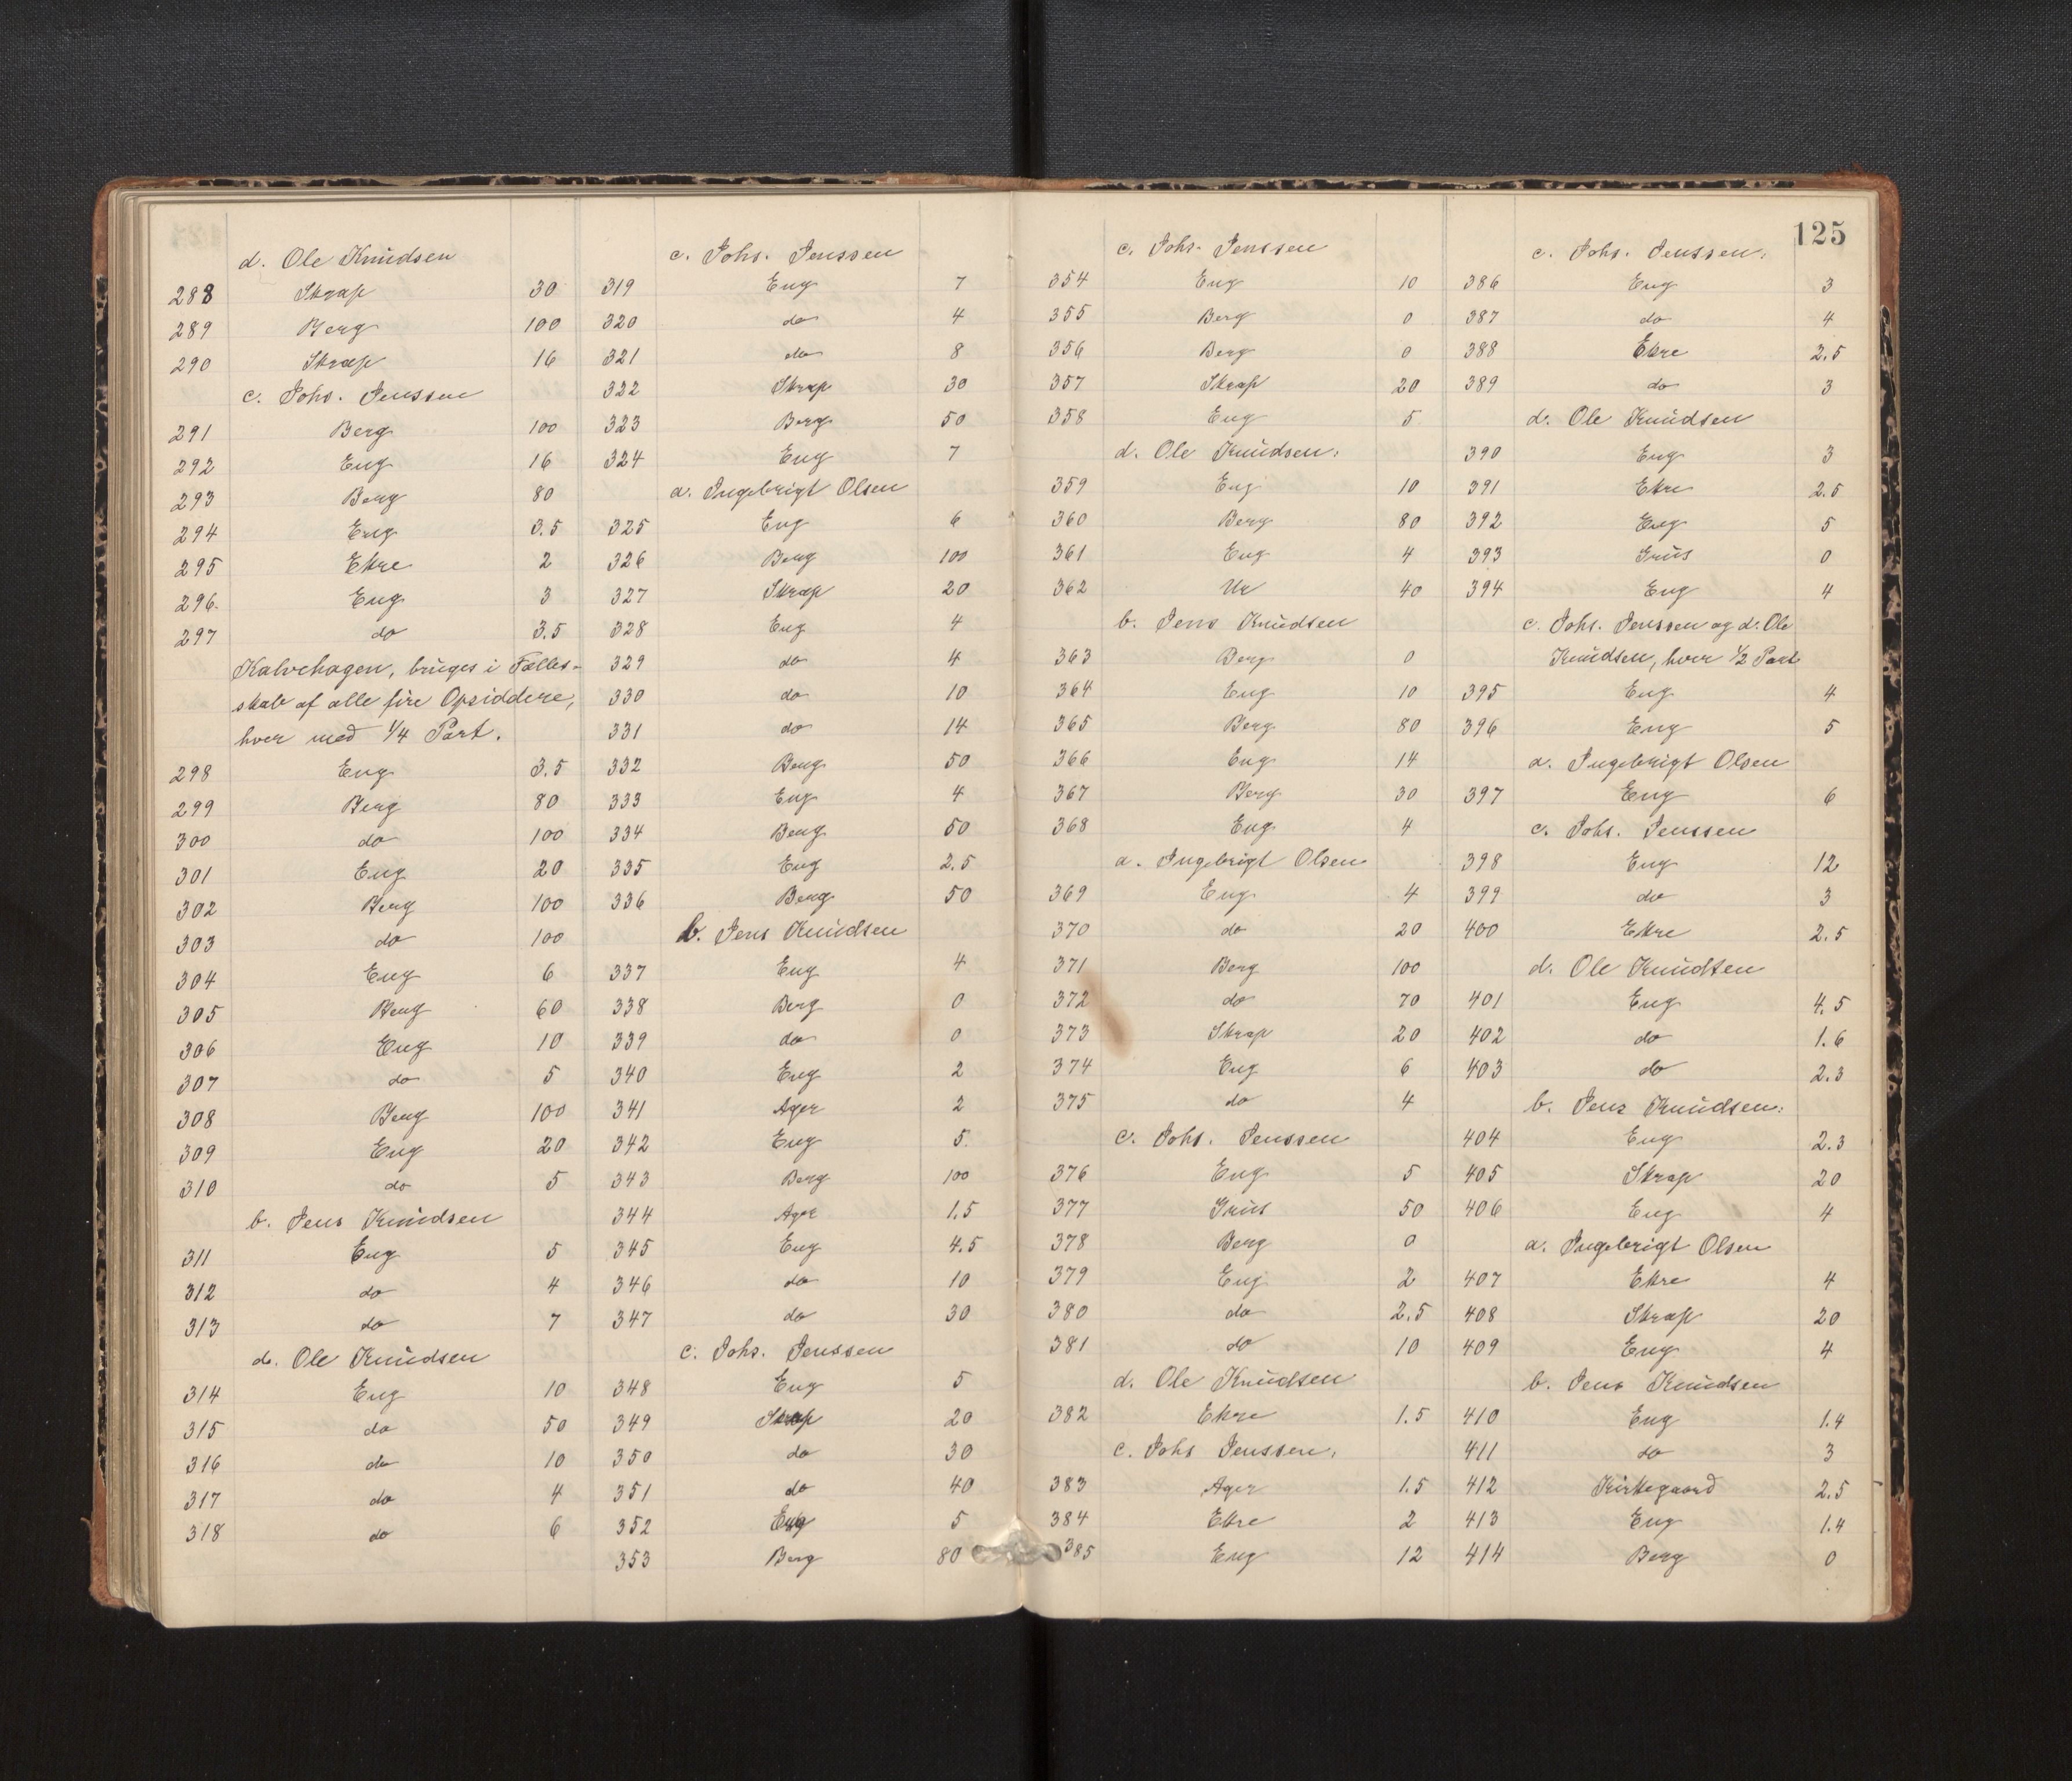 125
d. Ole Knudsen
288 Skrap 30
289 Berg 100
290 Skrap 16
c. Johs. Jenssen
291 Berg 100
292 Eng 16
293 Berg 80
294 Eng 3.5
295 Ekre 2
296. Eng 3
297 do 3.5
Kalvehagen, bruges i Fælles-
skab af alle fire Opsiddere,
hver med 1/4 Part.
298 Eng 3.5
299 Berg 80
300 do 100
301 Eng 20
302 Berg 100
303 do 100
304 Eng 6
305 Berg 60
306 Eng 10
307 do 5
308 Berg 100
309 Eng 20
310 do 5
b. Jens Knudsen
311 Eng 5
312 do 4
313 do 7
d. Ole Knudsen
314 Eng 10
315 do 50
316 do 10
317 do 4
318 do 6
c. Johs. Jenssen
319 Eng 7
320 do 4
321 do 8
322 Skrap 30
323 Berg 50
324 Eng 7
a. Ingebrigt Olsen
325 Eng 6
326 Berg 100
327 Skrap 20
328 Eng 4
329 do 4
330 do 10
331 do 14
332 Berg 50
333 Eng 4
334 Berg 50
335 Eng 2.5
336 Berg 50
b. Jens Knudsen
337 Eng 4
338 Berg 0
339 do 0
340 Eng 2
341 Ager 2
342 Eng 5.
343 Berg 100
344 Ager 1.5
345 Eng 4.5
346 do 10
347 do 30
c. Johs. Jenssen
348 Eng 5
349 Skrap 20
350 do 30
351 do 40
352 Eng 5
353 Berg 80
c. Johs. Jenssen
354 Eng 10
355 Berg 0
356 Berg 0
357 Skrap 20
358 Eng 5
d. Ole Knudsen:
359 Eng 10
360 Berg 80
361 Eng 4
362 Ur 40
b. Jens Knudsen
363 Berg 0
364 Eng 10
365 Berg 80
366 Eng 14
367 Berg 30
368 Eng 4
a. Ingebrigt Olsen
369 Eng 4
370 do 20
371 Berg 100
372 do 70
373 Skrap 20
374 Eng 6
375 do 4
c. Johs. Jenssen
376 Eng 5
377 Grus 50
378 Berg 0
379 Eng 2
380 do 2.5
381 do 10
d. Ole Knudsen
382 Ekre 1.5
c. Johs Jenssen.
383 Ager 1.5
384 Ekre 2
385 Eng 12
c. Johs. Jenssen:
386 Eng 3
387 do 4
388 Ekre 2.5
389 do 3
d. Ole Knudsen
390 Eng 3
391 Ekre 2.5
392 Eng 5
393 Grus 0
394 Eng 4
c. Johs. Jenssen og d. Ole
Knudsen, hver 1/2 Part
395 Eng 4
396 Eng 5
a. Ingebrigt Olsen
397 Eng 6
c. Johs. Jenssen
398 Eng 12
399 do 3
400 Ekre 2.5
d. Ole Knudsen
401 Eng 4.5
402 do 1.6
403 do 2.3
b. Jens Knudsen:
404 Eng 2.3
405 Skrap 20
406 Eng 4
a. Ingebrigt Olsen
407 Ekre 4
408 Skrap 20
409 Eng 4
b. Jens Knudsen
410 Eng 1.4
411 do 3
412 Kirkegaard 2.5
413 Eng 1.4
414 Berg 0